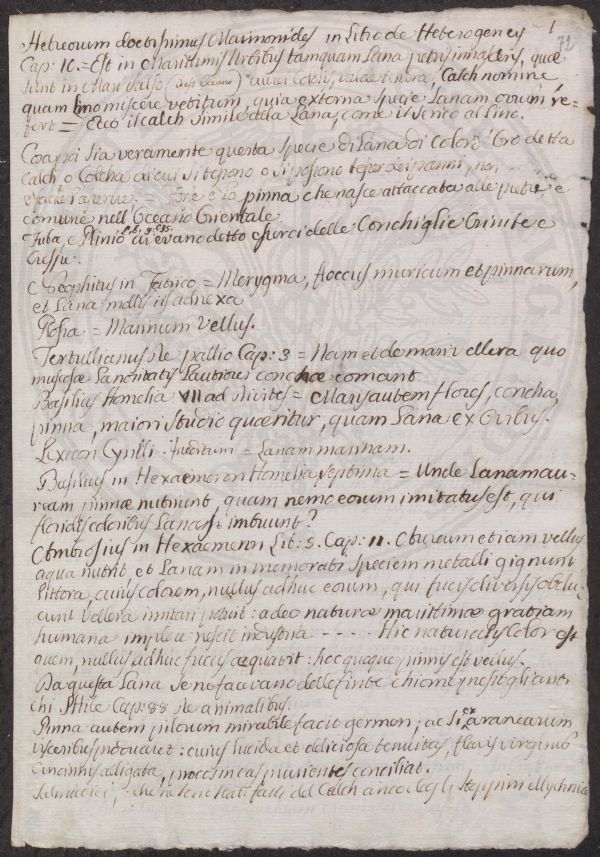 1
72
Hebreorum doctissimus Maimonides in Libro de Heterogeneis
Cap: 10. = Est in Maritimis Urbibus tamquam Lana petris innascens, quæ
sunt in Mari salso aurei coloris, valde tenera, Calch nomine
quam lino miscere vetitum, quia externa specie Lanam ovium re-
fert = Ecco il calch simile alla Lana, come il Serico al lino.
Cosa poi sia veramente questa specie di Lana di color d'Oro detta
calch o Colcha di cui si
e la pinna che nasce attaccata alle pietre e
comune nell'Oceano Orientale
Juba e Plinio L. 9. avevano detto esservi delle Conchiglie Crinite e
Cresse.
Seephitus in Fabrico = Merygma, floccus muricum et pinnarum,
et Lana mollis iis adnexa
Glossa = Marinum Vellus.
Tertullianus De pallio Cap: 3 = Nam et de mari vellera quo
muscosæ Lanositatis lautiores conchæ comant
Basilius Homelia VII ad Divites = Maris autem flores, concha,
pinna, maiori studio quæritur, quam Lana ex Ovibus.
Lexicon Cyrilli. = Lanam marinam.
Basilius in Hexaemeron Homelia Septima = Unde Lanam au-
ream pinnæ nutriunt, quam nemo eorum imitatus est, qui
floridis coloribus Lanas imbuunt?
Ambrosius in Hexaemeron Lib: 5. Cap: 11. Aureum etiam vellus
aqua nutrit, et Lanam in memorati speciem metalli gignunt
Littora, cuius colorem, nullus adhuc eorum, qui fucis diversis obdu-
cunt Vellera imitari potuit: adeo naturæ maritimæ gratiam
humana implere nescit industria - - - - Hic naturalis Color est
quem, nullus adhuc fucus æquavit: hoc quoque pinnis est vellus.
Da questa Lana se ne facevano delle finte chiome presso gli anti-
chi Phile Cap: 88 de animalibus.
Pinna autem pilorum mirabile facit germen, ac si ex aranearum
visceribus produceret: cuius lucida et deliciosa tenuitas, flavis virginis
cincinnis alligata, procos in eas prurientes conciliat.
del Calch anco degli Stoppini ellychnia